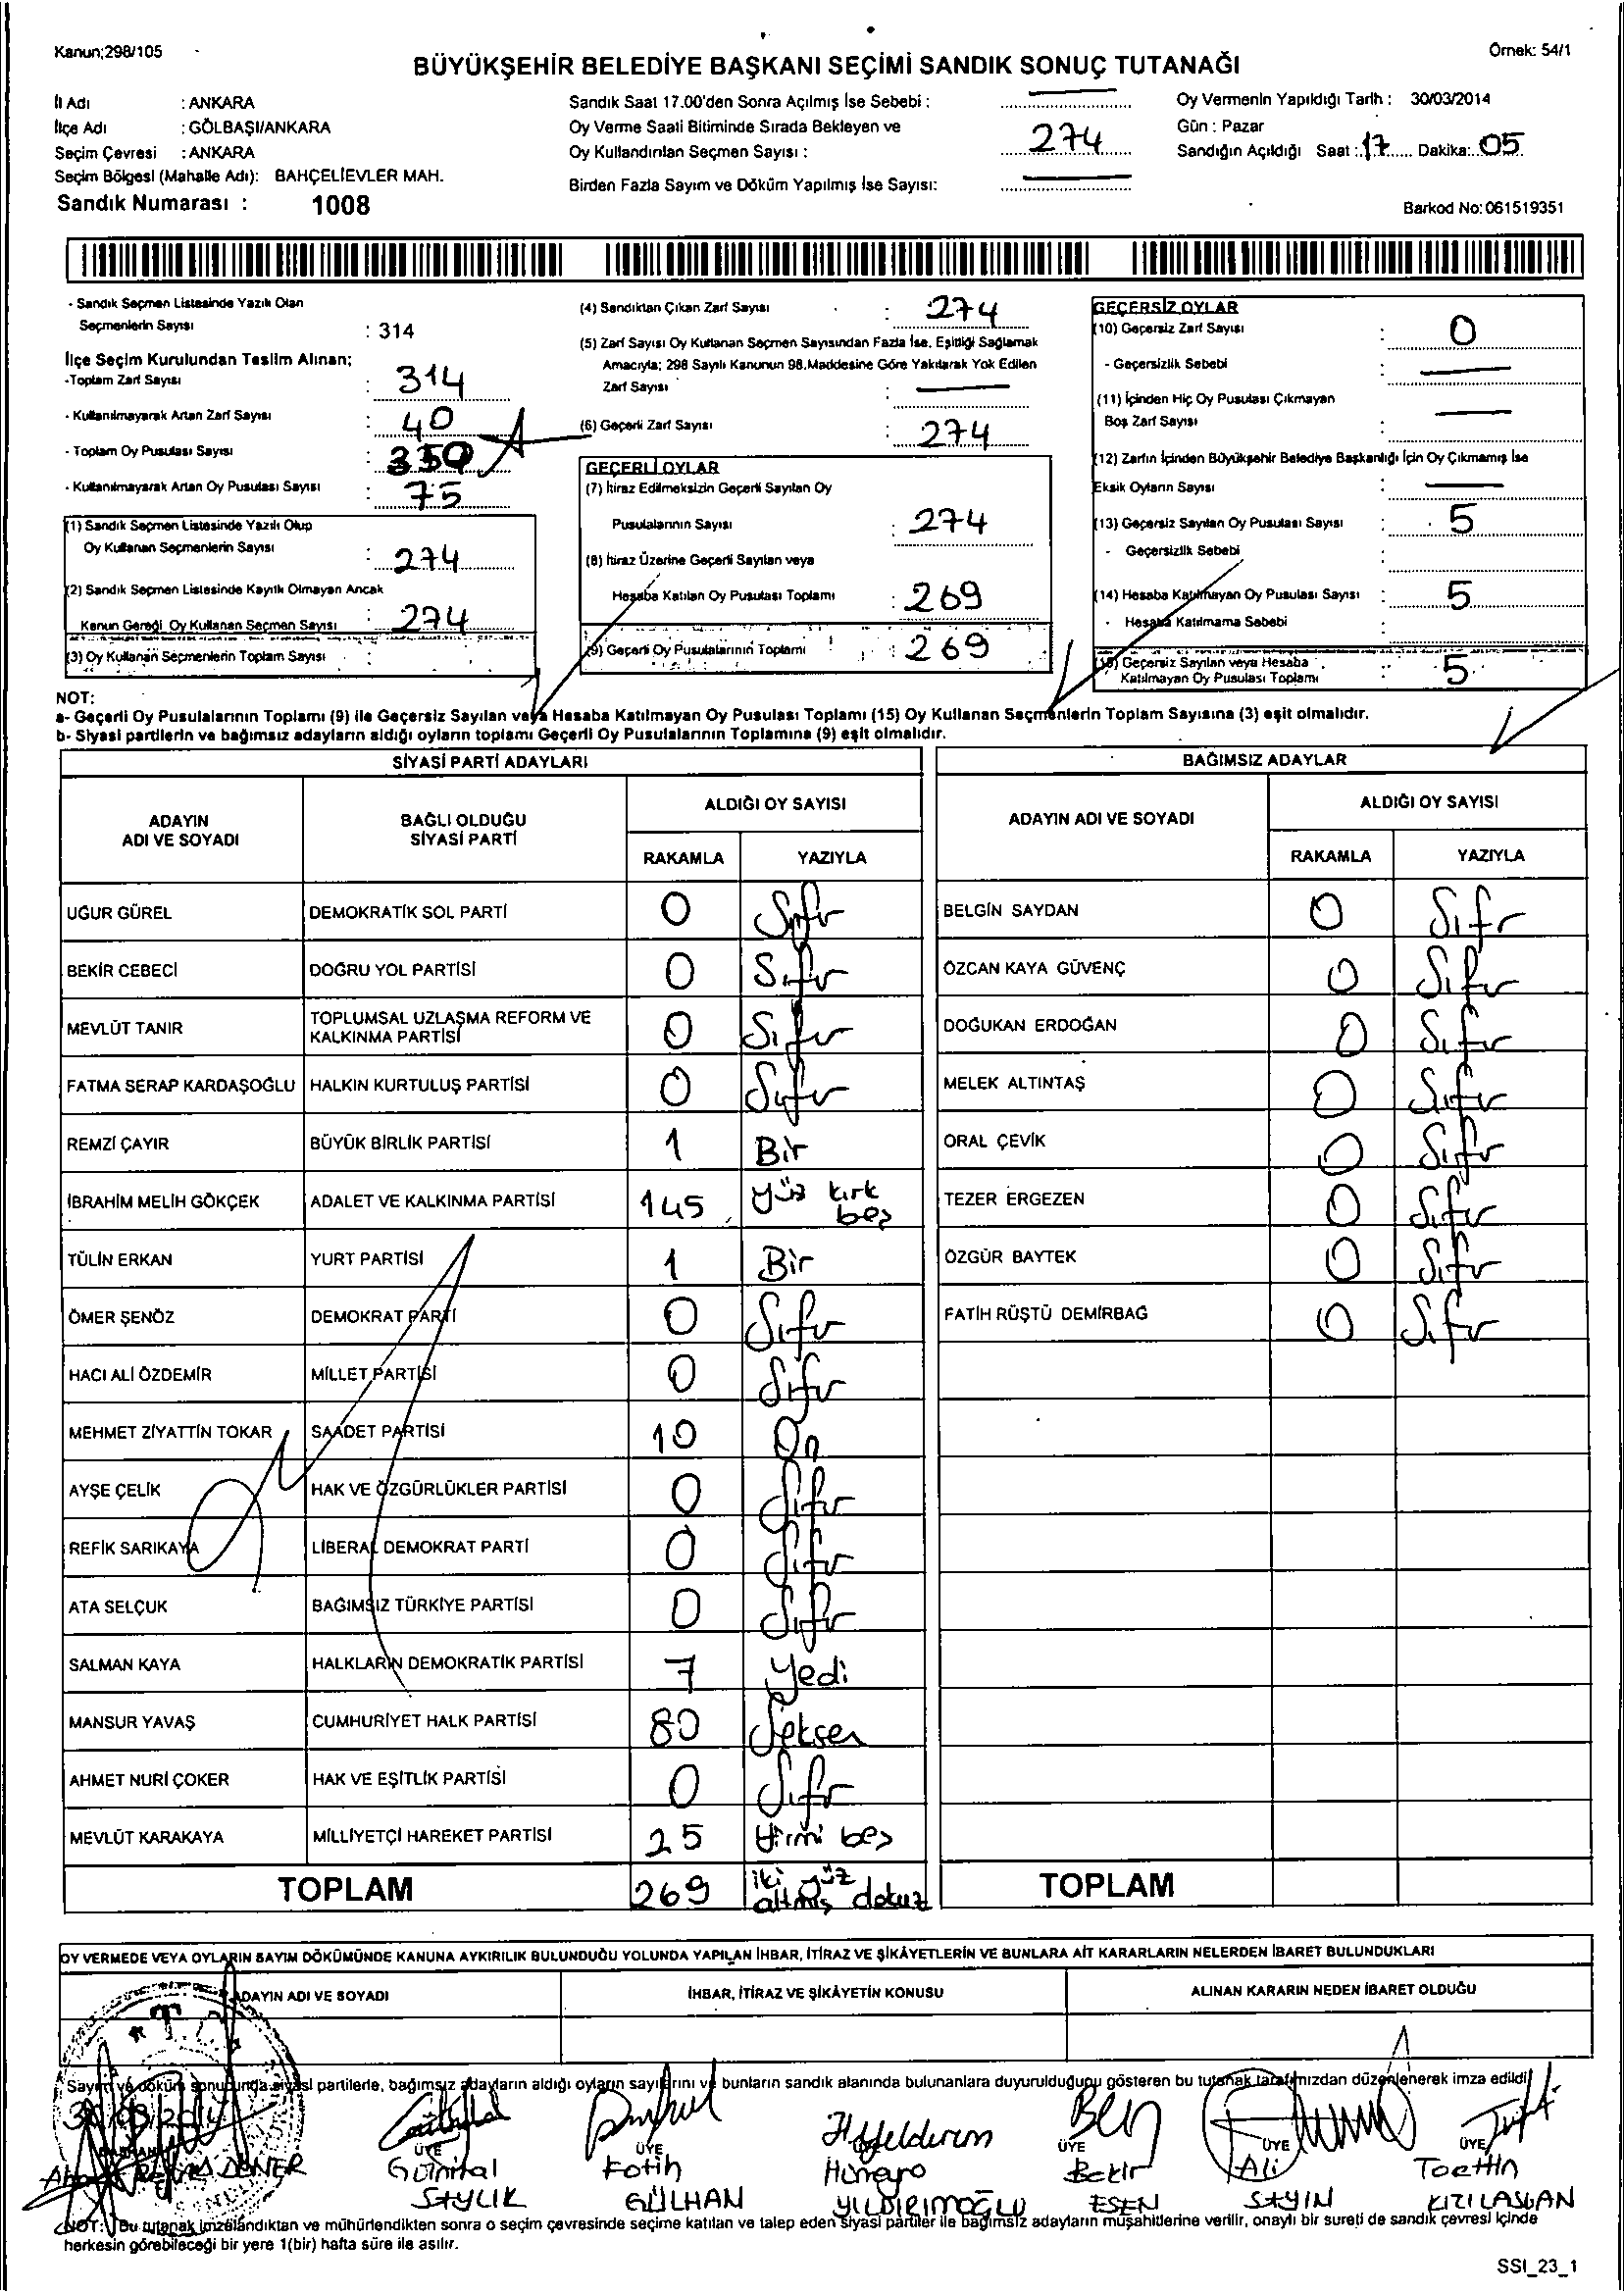 Kanun;298/105
Örnek: 54/1
BÜYÜKŞEHİR BELEDİYE BAŞKANI SEÇİMİ SANDIK SONUÇ TUTANAĞI
İl Adı : ANKARA
İlçe Adı : GÖLBAŞI/ANKARA
Seçim Çevresi : ANKARA
Seçim Bölgesi (Mahalle Adı): BAHÇELİEVLER MAH.
Sandık Numarası : 1008
Sandık Saat 17.00'den Sonra Açılmış İse Sebebi :
Oy Verme Saati Bitiminde Sırada Bekleyen ve
Oy Kullandırılan Seçmen Sayısı : 274
Birden Fazla Sayım ve Döküm Yapılmış İse Sayısı:
Oy Vermenin Yapıldığı Tarih : 30/03/2014
Gün : Pazar
Sandığın Açıldığı Saat : 17 Dakika: 05
Barkod No: 061519351
- Sandık Seçmen Listesinde Yazılı Olan
Seçmenlerin Sayısı : 314
İlçe Seçim Kurulundan Teslim Alınan;
-Toplam Zarf Sayısı : 314
- Kullanılmayarak Artan Zarf Sayısı : 40
- Toplam Oy Pusulası Sayısı : 350
- Kullanılmayarak Artan Oy Pusulası Sayısı : 75
(1) Sandık Seçmen Listesinde Yazılı Olup
Oy Kullanan Seçmenlerin Sayısı : 274
(2) Sandık Seçmen Listesinde Kayıtlı Olmayan Ancak
Kanun Gereği Oy Kullanan Seçmen Sayısı : 274
(3) Oy Kullanan Seçmenlerin Toplam Sayısı :
(4) Sandıktan Çıkan Zarf Sayısı : 274
(5) Zarf Sayısı Oy Kullanan Seçmen Sayısından Fazla İse, Eşitliği Sağlamak
Amacıyla; 298 Sayılı Kanunun 98.Maddesine Göre Yakılarak Yok Edilen
Zarf Sayısı :
(6) Geçerli Zarf Sayısı : 274
GEÇERLİ OYLAR
(7) İtiraz Edilmeksizin Geçerli Sayılan Oy
Pusulalarının Sayısı : 274
(8) İtiraz Üzerine Geçerli Sayılan veya
Hesaba Katılan Oy Pusulası Toplamı : 269
(9) Geçerli Oy Pusulalarının Toplamı : 269
GEÇERSİZ OYLAR
(10) Geçersiz Zarf Sayısı : 0
- Geçersizlik Sebebi :
(11) İçinden Hiç Oy Pusulası Çıkmayan
Boş Zarf Sayısı :
(12) Zarfın İçinden Büyükşehir Belediye Başkanlığı İçin Oy Çıkmamış İse
Eksik Oyların Sayısı :
(13) Geçersiz Sayılan Oy Pusulası Sayısı : 5
- Geçersizlik Sebebi :
(14) Hesaba Katılmayan Oy Pusulası Sayısı : 5
- Hesaba Katılmama Sebebi :
(15) Geçersiz Sayılan veya Hesaba
Katılmayan Oy Pusulası Toplamı : 5
NOT:
a- Geçerli Oy Pusulalarının Toplamı (9) ile Geçersiz Sayılan veya Hesaba Katılmayan Oy Pusulası Toplamı (15) Oy Kullanan Seçmenlerin Toplam Sayısına (3) eşit olmalıdır.
b- Siyasi partilerin ve bağımsız adayların aldığı oyların toplamı Geçerli Oy Pusulalarının Toplamına (9) eşit olmalıdır.
SİYASİ PARTİ ADAYLARI
ADAYIN ADI VE SOYADI BAĞLI OLDUĞU SİYASİ PARTİ ALDIĞI OY SAYISI
RAKAMLA YAZIYLA
UĞUR GÜREL DEMOKRATİK SOL PARTİ 0 Sıfır
BEKİR CEBECİ DOĞRU YOL PARTİSİ 0 Sıfır
MEVLÜT TANIR TOPLUMSAL UZLAŞMA REFORM VE KALKINMA PARTİSİ 0 Sıfır
FATMA SERAP KARDAŞOĞLU HALKIN KURTULUŞ PARTİSİ 0 Sıfır
REMZİ ÇAYIR BÜYÜK BİRLİK PARTİSİ 1 Bir
İBRAHİM MELİH GÖKÇEK ADALET VE KALKINMA PARTİSİ 145 yüz kırk beş
TÜLİN ERKAN YURT PARTİSİ 1 Bir
ÖMER ŞENÖZ DEMOKRAT PARTİ 0 Sıfır
HACI ALİ ÖZDEMİR MİLLET PARTİSİ 0 Sıfır
MEHMET ZİYATTİN TOKAR SAADET PARTİSİ 10 On
AYŞE ÇELİK HAK VE ÖZGÜRLÜKLER PARTİSİ 0 Sıfır
REFİK SARIKAYA LİBERAL DEMOKRAT PARTİ 0 Sıfır
ATA SELÇUK BAĞIMSIZ TÜRKİYE PARTİSİ 0 Sıfır
SALMAN KAYA HALKLARIN DEMOKRATİK PARTİSİ 7 Yedi
MANSUR YAVAŞ CUMHURİYET HALK PARTİSİ 80 Seksen
AHMET NURİ ÇOKER HAK VE EŞİTLİK PARTİSİ 0 Sıfır
MEVLÜT KARAKAYA MİLLİYETÇİ HAREKET PARTİSİ 25 Yirmi beş
TOPLAM 269 iki yüz altmış dokuz
BAĞIMSIZ ADAYLAR
ADAYIN ADI VE SOYADI ALDIĞI OY SAYISI
RAKAMLA YAZIYLA
BELGİN SAYDAN 0 Sıfır
ÖZCAN KAYA GÜVENÇ 0 Sıfır
DOĞUKAN ERDOĞAN 0 Sıfır
MELEK ALTINTAŞ 0 Sıfır
ORAL ÇEVİK 0 Sıfır
TEZER ERGEZEN 0 Sıfır
ÖZGÜR BAYTEK 0 Sıfır
FATİH RÜŞTÜ DEMİRBAĞ 0 Sıfır
TOPLAM
OY VERMEDE VEYA OYLARIN SAYIM DÖKÜMÜNDE KANUNA AYKIRILIK BULUNDUĞU YOLUNDA YAPILAN İHBAR, İTİRAZ VE ŞİKÂYETLERİN VE BUNLARA AİT KARARLARIN NELERDEN İBARET BULUNDUKLARI
ADAYIN ADI VE SOYADI İHBAR, İTİRAZ VE ŞİKÂYETİN KONUSU ALINAN KARARIN NEDEN İBARET OLDUĞU
Sayım ve döküm sonucunda siyasi partilerle, bağımsız adayların aldığı oyların sayılarını ve bunların sandık alanında bulunanlara duyurulduğunu gösteren bu tutanak tarafımızdan düzenlenerek imza edildi
ÜYE ÜYE ÜYE ÜYE ÜYE
Fatih Bekir Ali
GÜLHAN YILDIRIMOĞLU ESEN SAYIN KIZILASLAN
NOT: Bu tutanak imzalandıktan ve mühürlendikten sonra o seçim çevresinde seçime katılan ve talep eden siyasi partiler ile bağımsız adayların müşahitlerine verilir, onaylı bir sureti de sandık çevresi içinde
herkesin görebileceği bir yere 1(bir) hafta süre ile asılır.
SSI_23_1